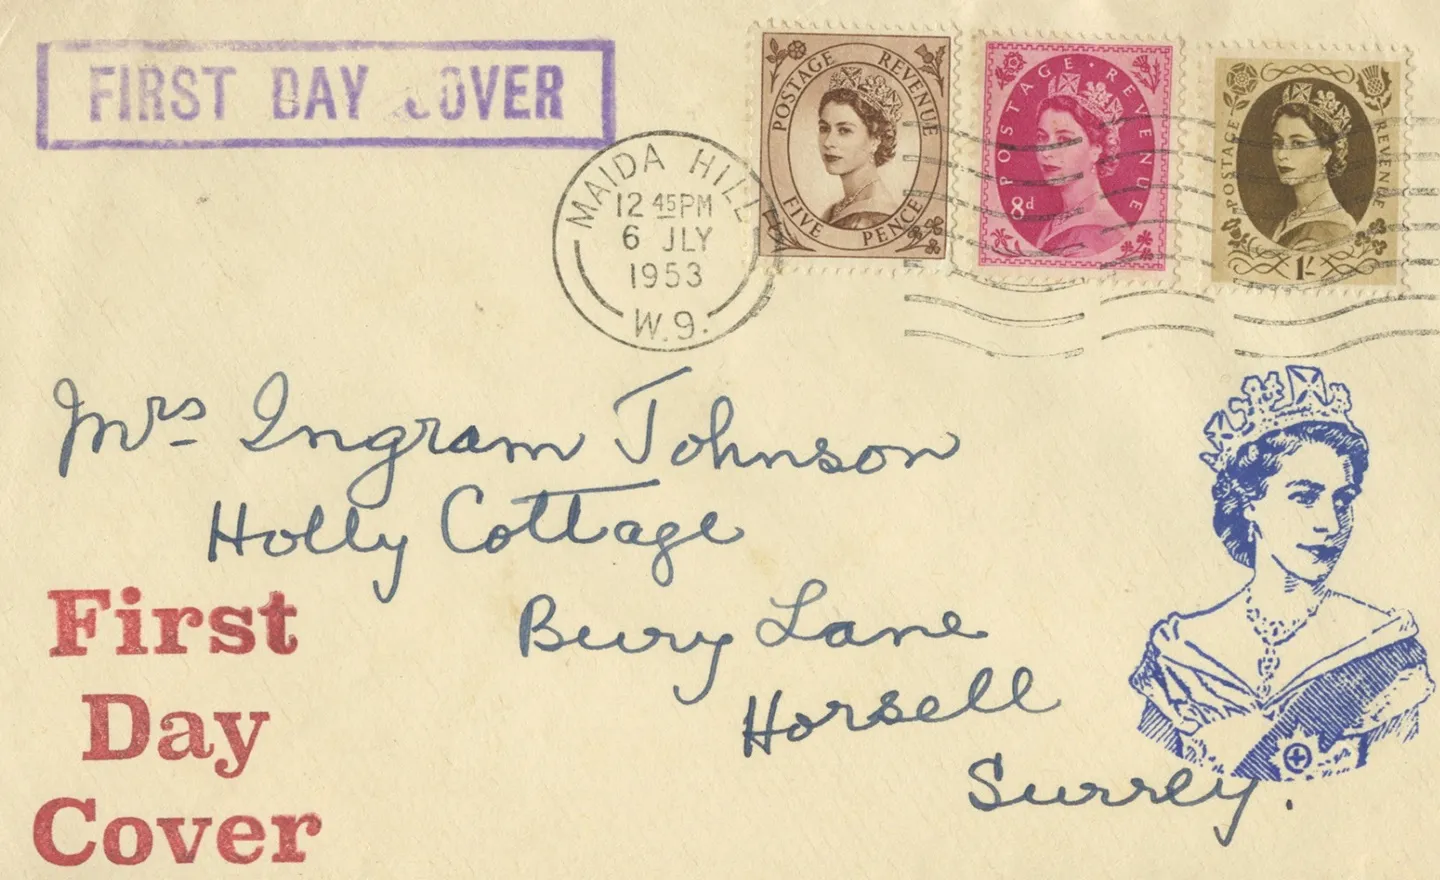 FIRST DAY COVER
POSTAGE REVENUE
FIVE PENCE
POSTAGE · REVENUE
8d
POSTAGE REVENUE
1/-
MAIDA HILL
12 45 PM
6 JLY
1953
W.9.
Mrs Ingram Johnson
Holly Cottage
Bury Lane
Horsell
Surrey.
First
Day
Cover